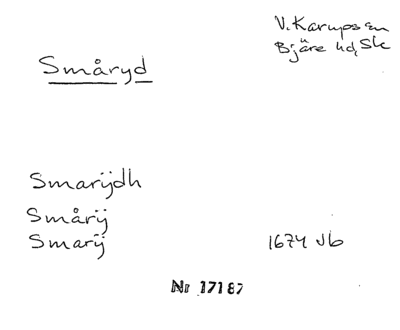 V. Karups sn
Bjäre hd, Sk
Småryd
Smarijdh
Smårij
Smarij 1674 Jb
Nr 17187